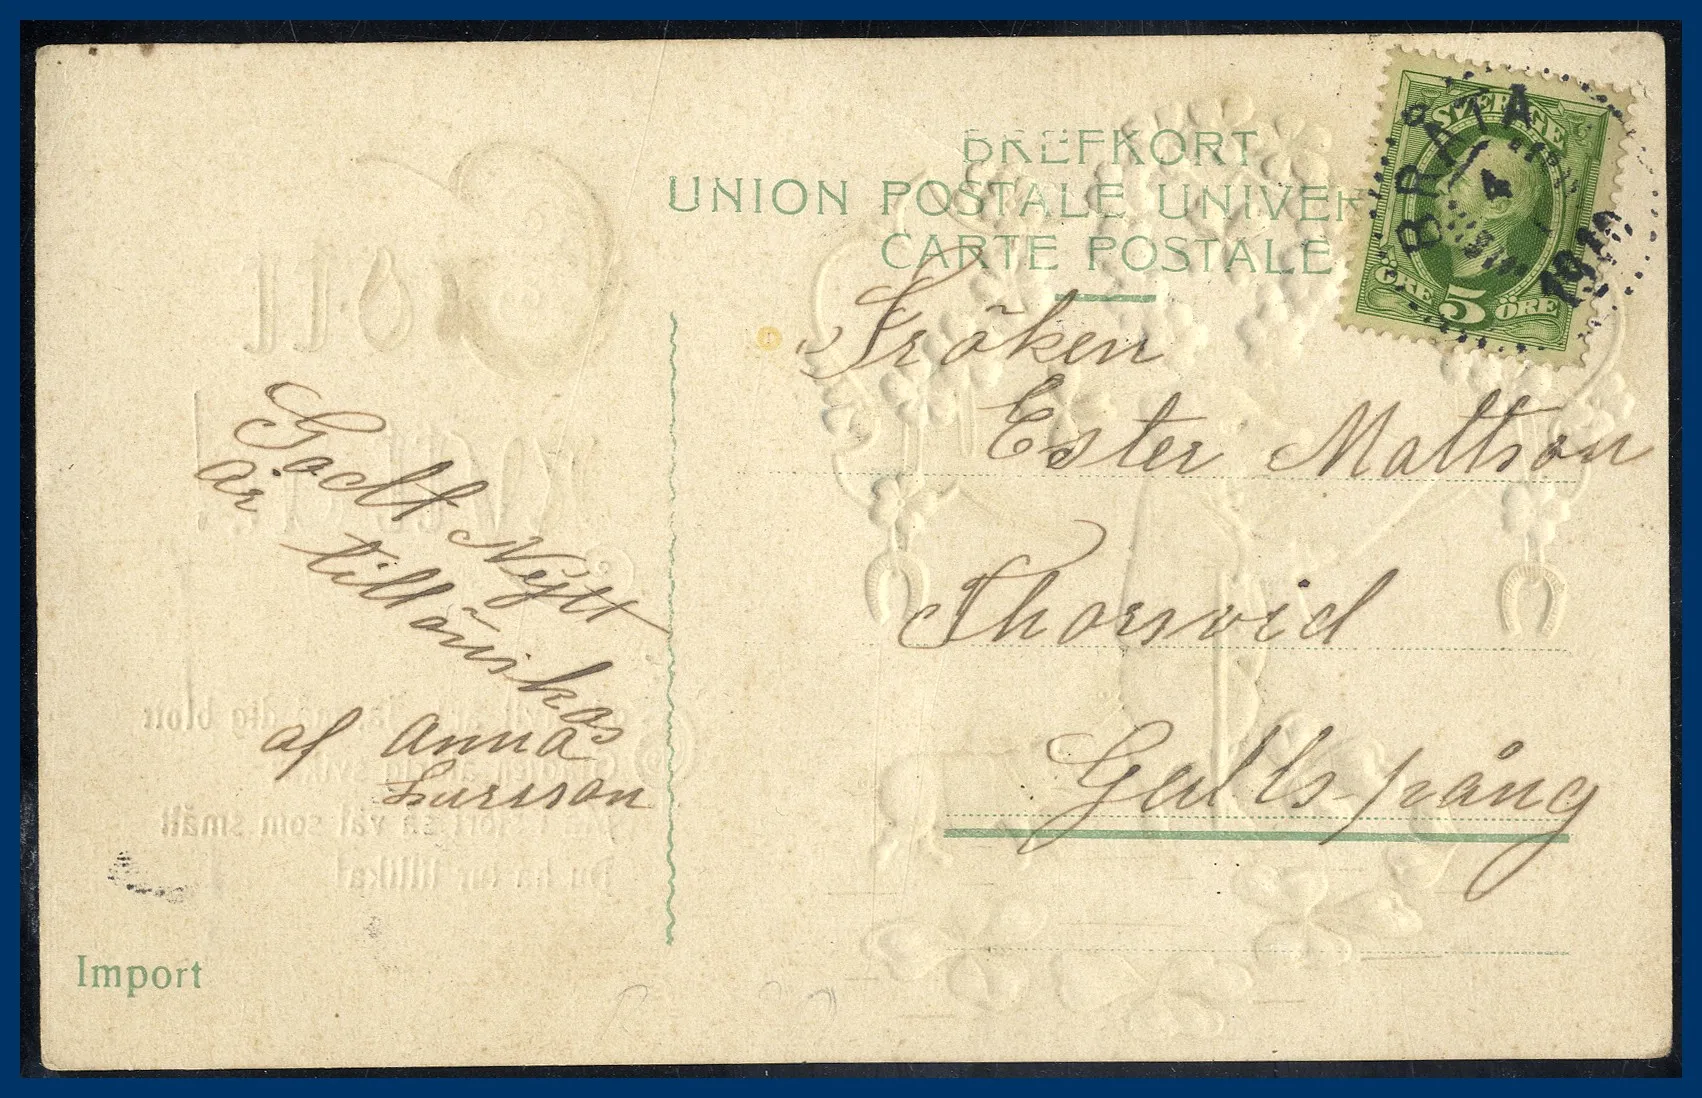 BREFKORT
UNION POSTALE UNIVER
CARTE POSTALE
SVERIGE
ÖRE 5 ÖRE
BRATA
4
Fröken
Ester Mattson
Thorsvid
Gullspång
Godt Nytt
År
tillönskas
af Anna
Larsson
Import